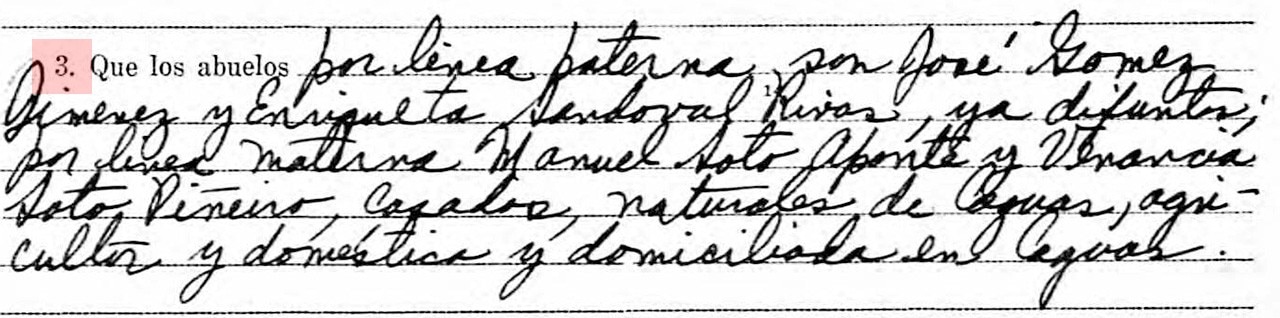 3. Que los abuelos por linea paterna, son José Gomez
Gimenez y Enriqueta Sandoval Rivas, ya difuntos;
por linea materna Manuel Soto Aponte y Venancia
Soto Piñeiro, casados, naturales de Caguas, agri-
cultor y doméstica y domiciliada en Caguas.